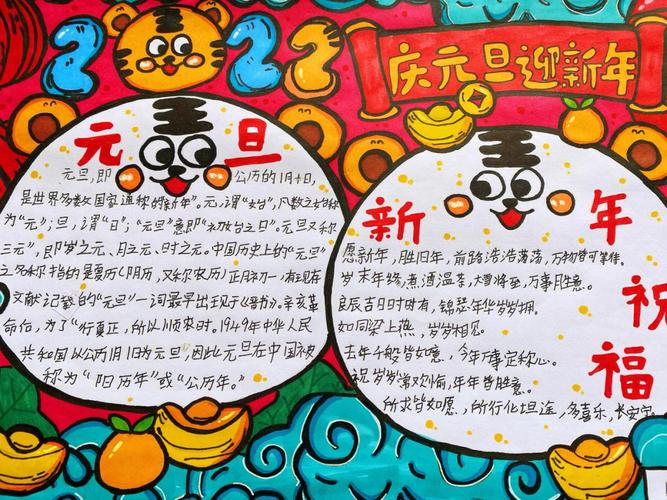 2023
庆元旦迎新年
元旦
元旦,即公历的1月1日,
是世界多数国家通称的“新年”。元,谓“始”,凡数之始称
为“元”;旦,谓“日”;“元旦”意即“初始之日”。元旦又称
“三元”,即岁之元、月之元、时之元。中国历史上的“元旦”
之名称指的是夏历(阴历,又称农历)正月初一,有现存
文献记载的“元旦”一词最早出现于《晋书》。辛亥革
命后,为了“行夏正,所以顺农时。1949年中华人民
共和国以公历1月1日为元旦,因此元旦在中国被
称为“阳历年”或“公历年。”
新年祝福
愿新年,胜旧年,前路浩浩荡荡,万物皆可期待。
岁末年终,煮酒温茶,大雪将至,万事胜意。
良辰吉日时时有,锦瑟年华岁岁拥。
如同梁上燕,岁岁相见。
去年千般皆如愿,今年万事定称心。
祝岁岁常欢愉,年年皆胜意。
所求皆如愿,所行化坦途,多喜乐,长安宁